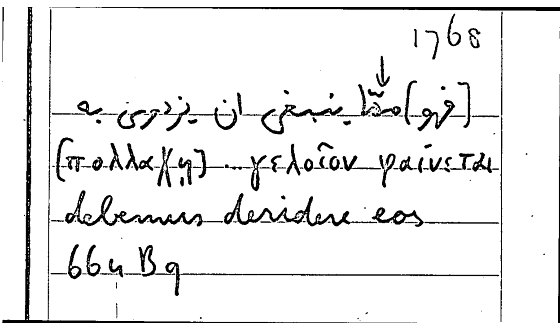 1768
[فهو] ممّا ينبغي ان يزدرى به
[πολλαχῇ] .. γελοῖον φαίνεται
debemus deridere eos
664 B9